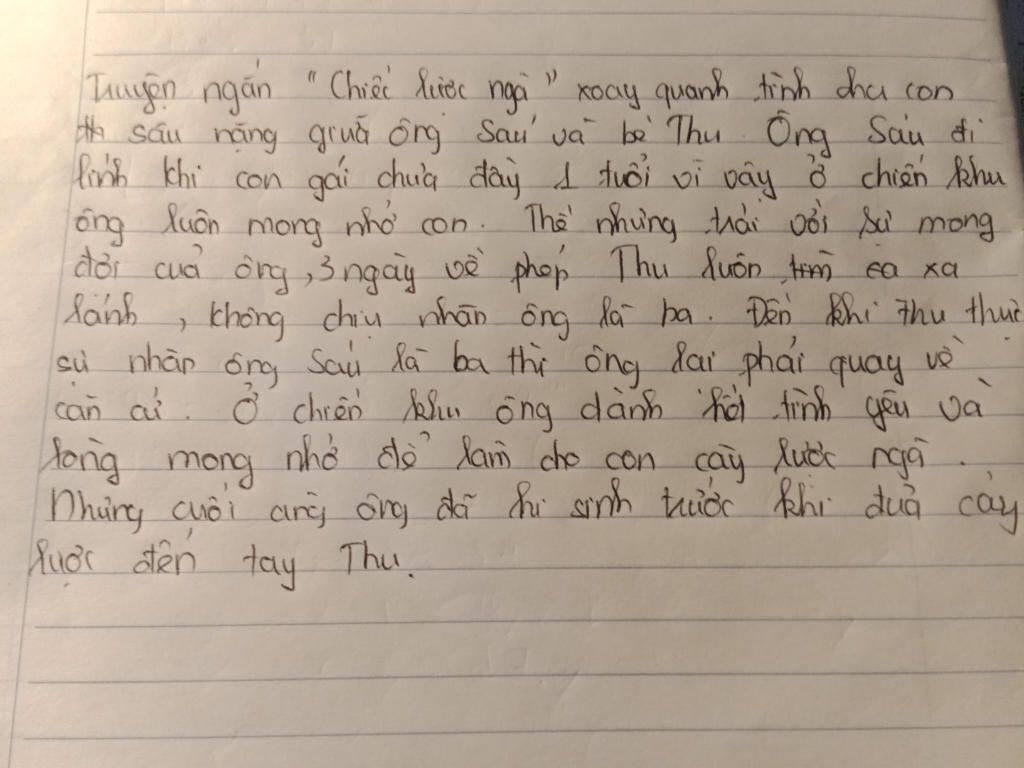 Truyện ngắn "Chiếc lược ngà" xoay quanh tình cha con
sâu nặng giữa ông Sáu và bé Thu. Ông Sáu đi
lính khi con gái chưa đầy 1 tuổi vì vậy ở chiến khu
ông luôn mong nhớ con. Thế nhưng trái với sự mong
đợi của ông, 3 ngày về phép Thu luôn tìm xa
lánh, không chịu nhận ông là ba. Đến khi Thu thực
sự nhận ông Sáu là ba thì ông lại phải quay về
căn cứ. Ở chiến khu ông dành hết tình yêu và
lòng mong nhớ để làm cho con cây lược ngà.
Nhưng cuối cùng ông đã hi sinh trước khi đưa cây
lược đến tay Thu.